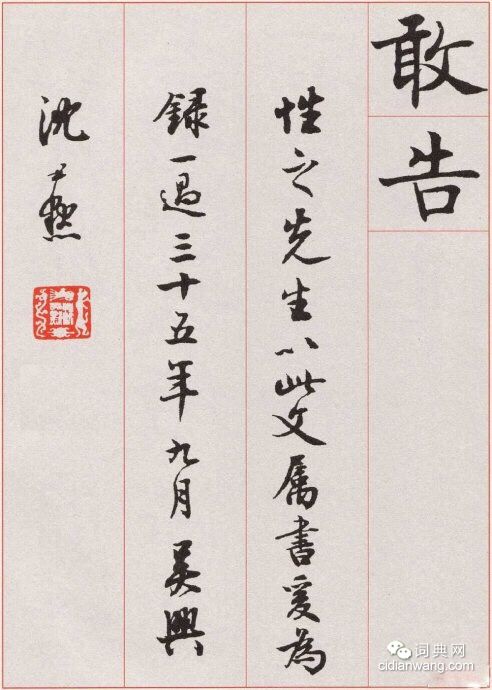 敢告
性之先生以此文属書爰為
録一過三十五年九月吴興
沈尹默
词典网
cidianwang.com